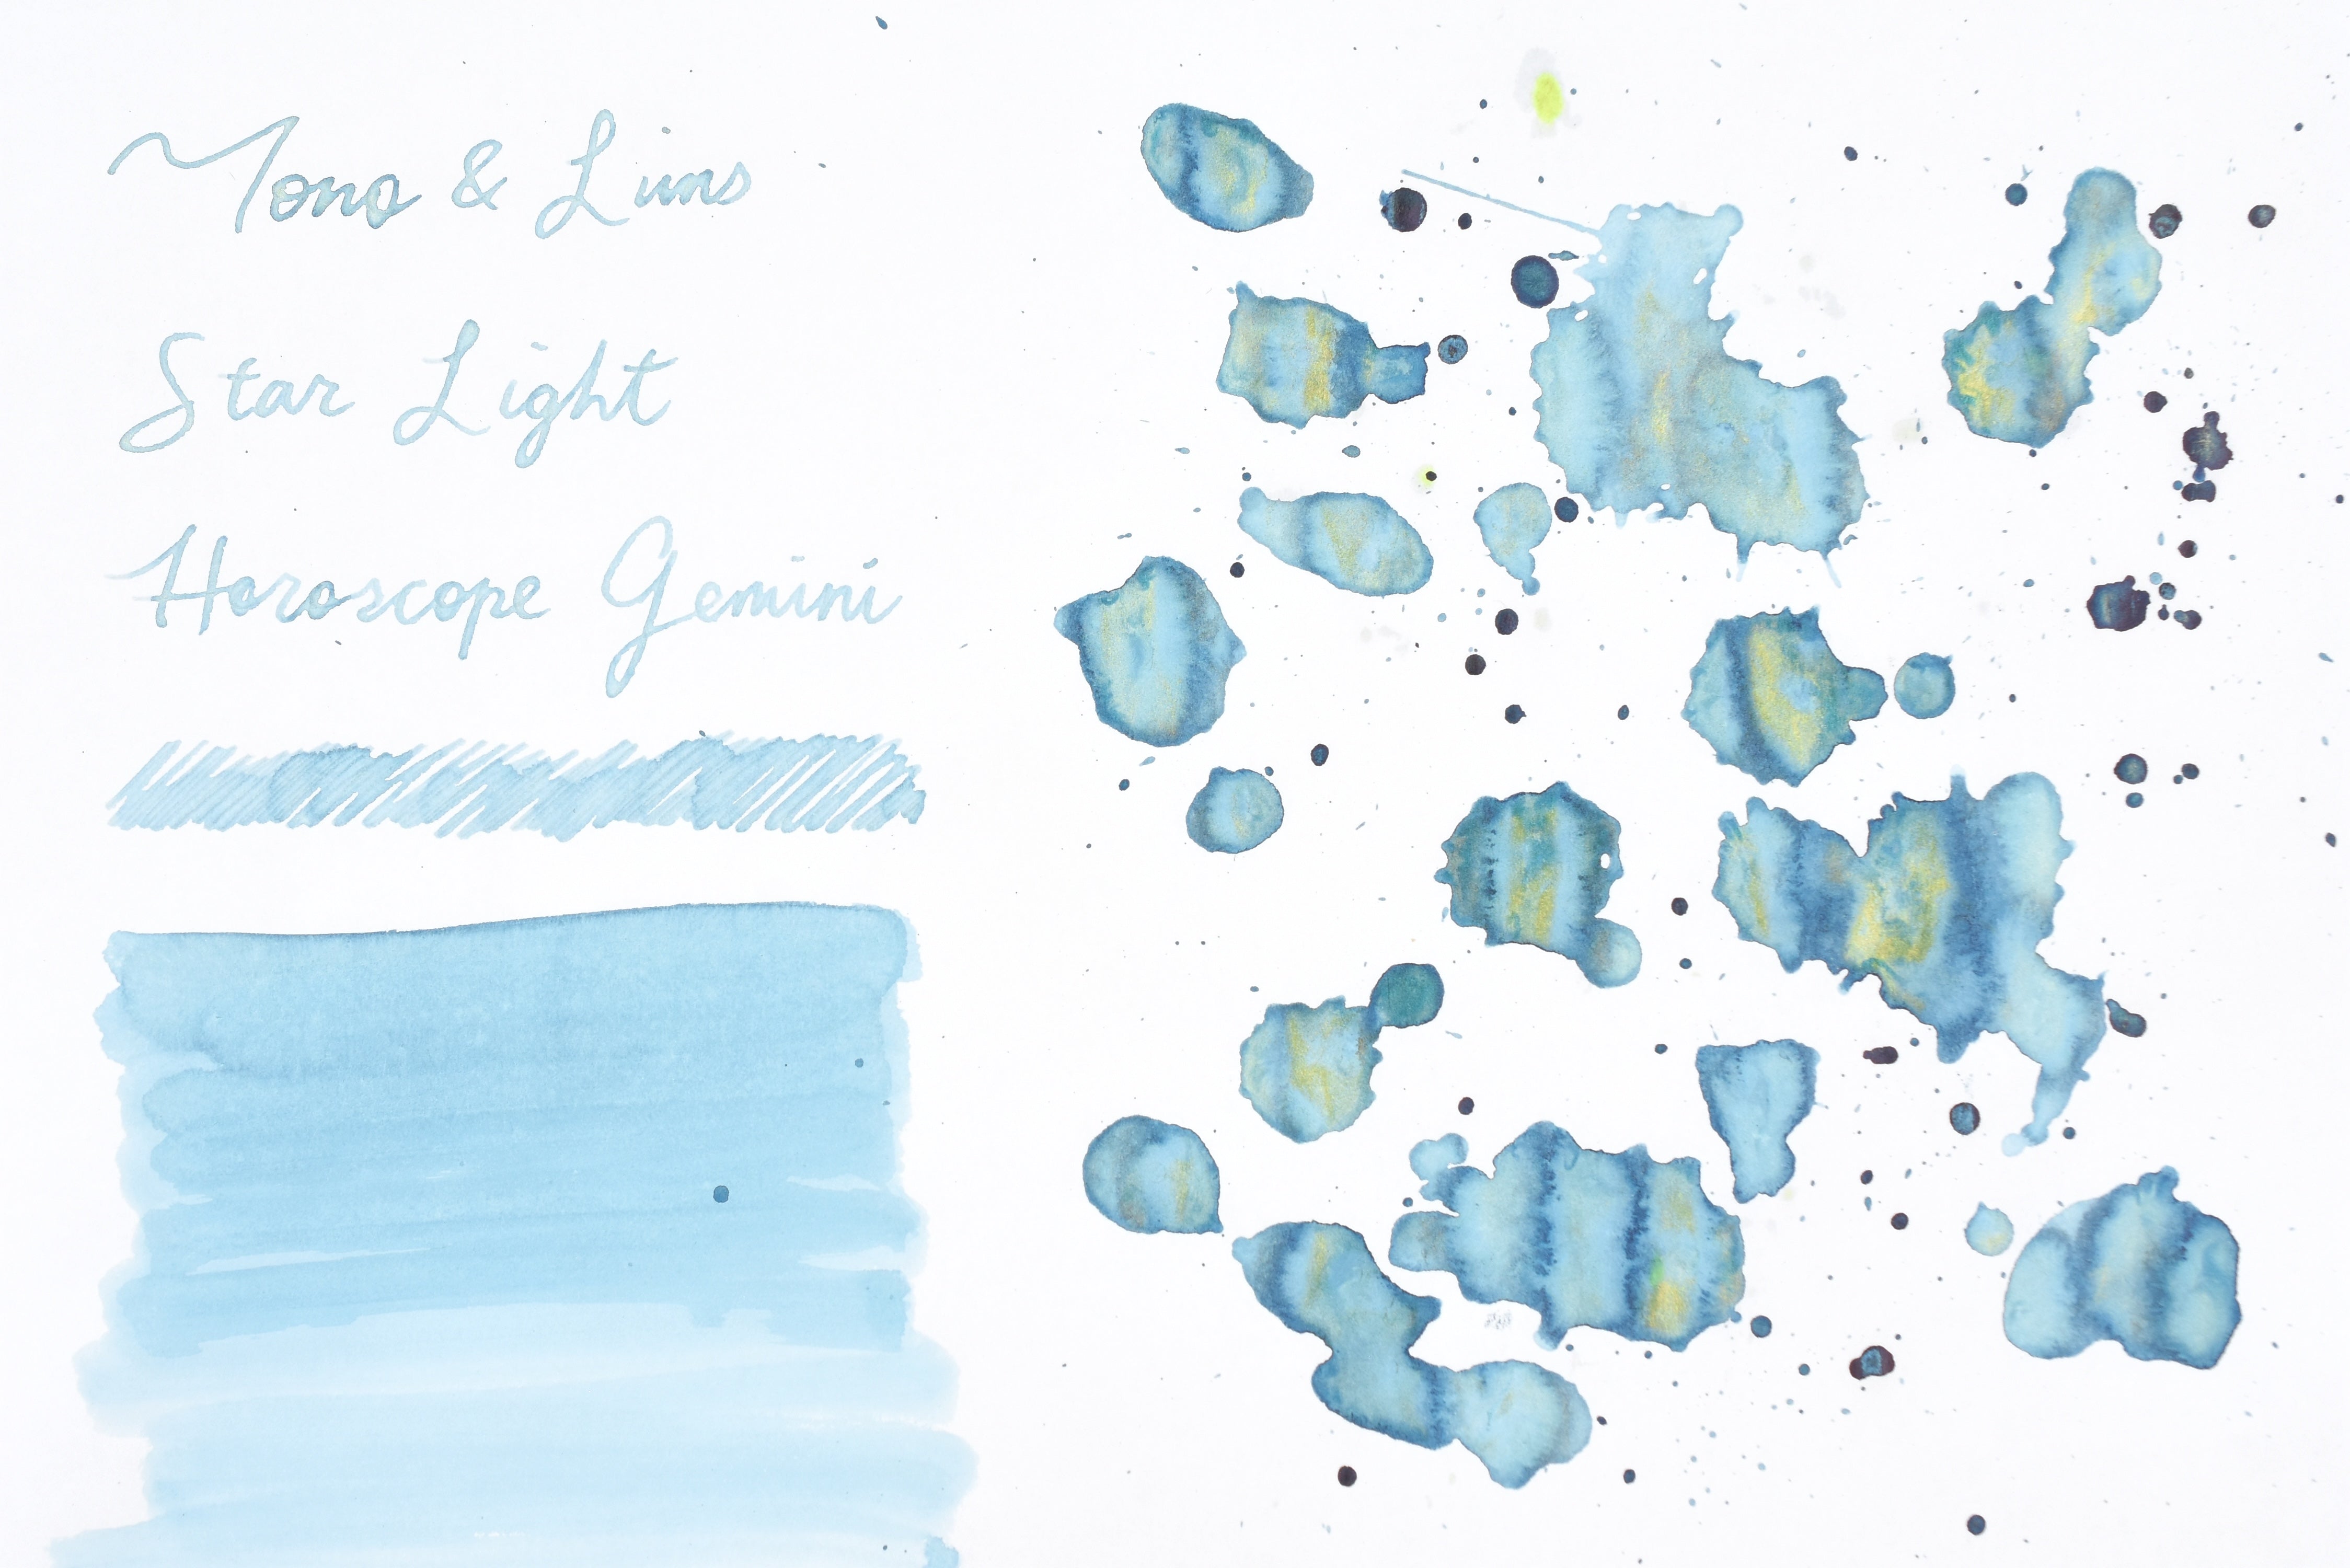 Tono & Lims
Star Light
Horoscope Gemini